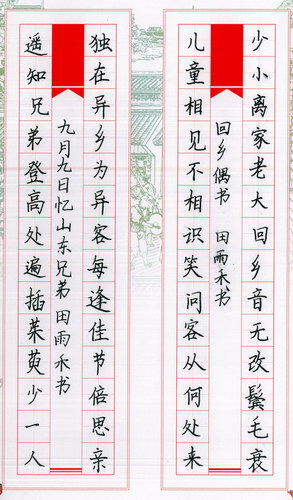 少小离家老大回乡音无改鬓毛衰
回乡偶书 田雨禾书
儿童相见不相识笑问客从何处来
独在异乡为异客每逢佳节倍思亲
九月九日忆山东兄弟 田雨禾书
遥知兄弟登高处遍插茱萸少一人